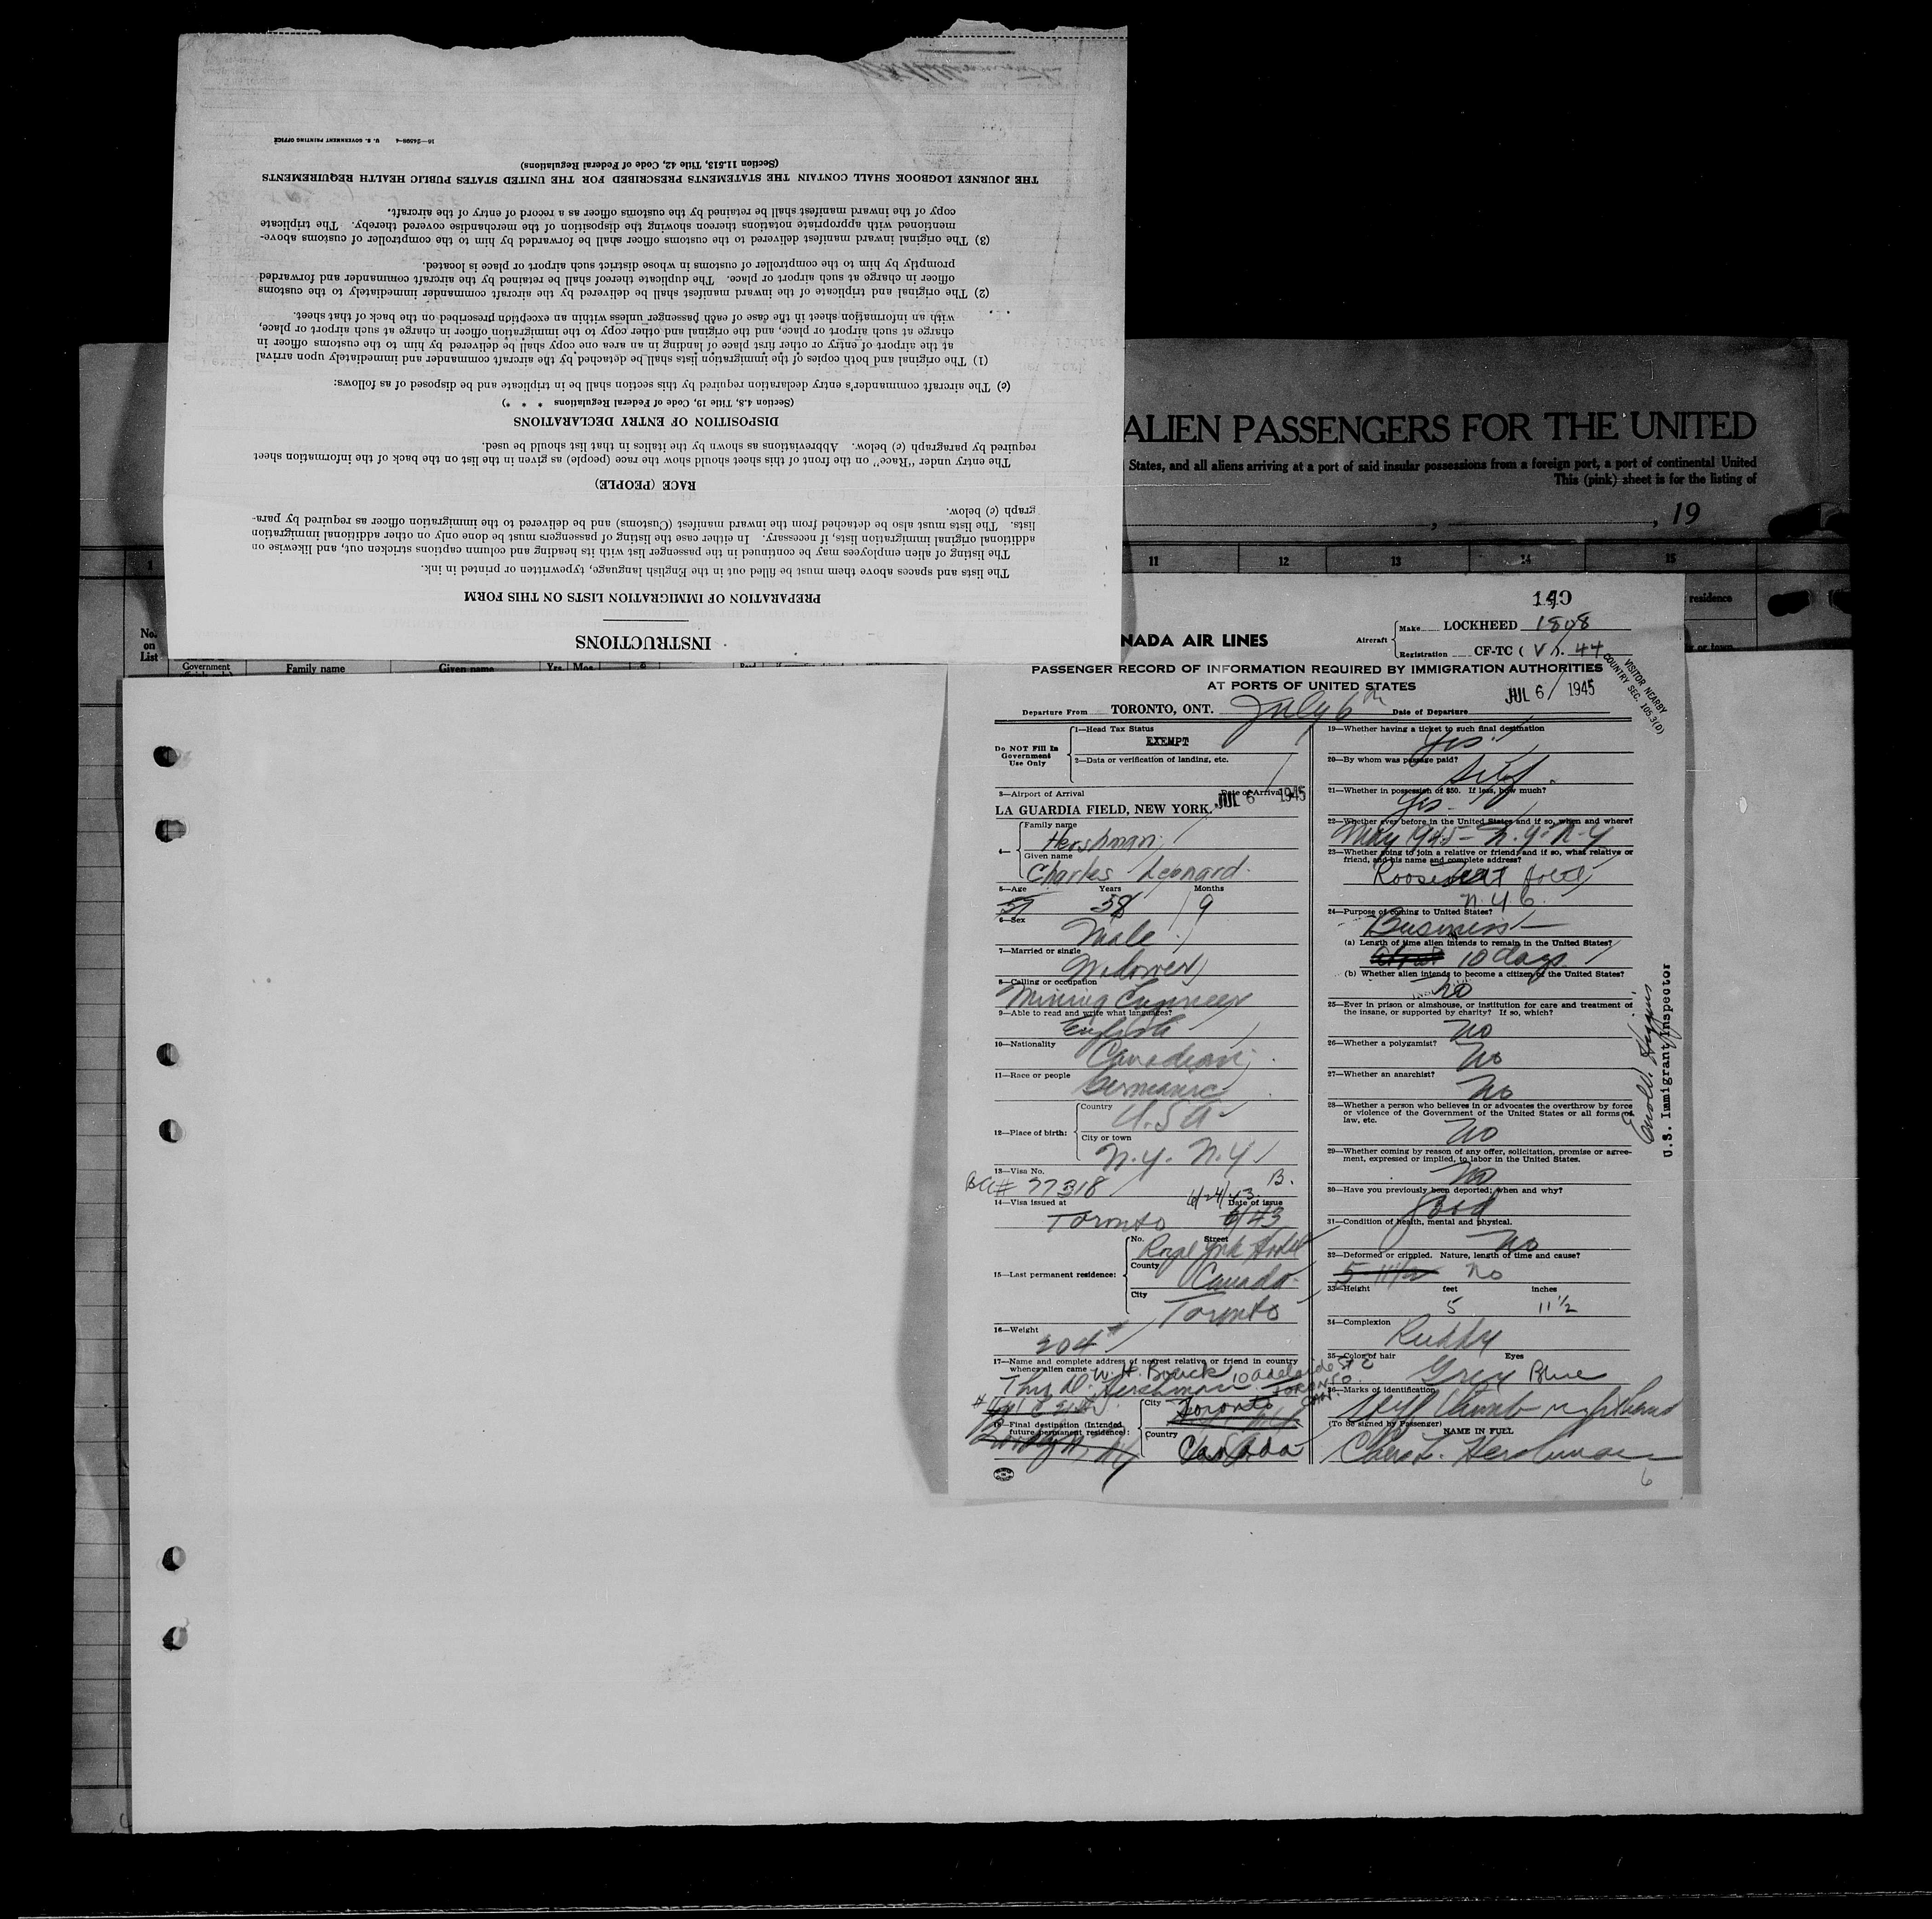 INSTRUCTIONS
PREPARATION OF IMMIGRATION LISTS ON THIS FORM
The lists and spaces above them must be filled out in the English language, typewritten or printed in ink.
The listing of alien employees may be continued in the passenger list with its heading and column captions stricken out, and likewise on
additional original immigration lists, if necessary. In either case the listing of passengers must be done only on other additional immigration
lists. The lists must also be detached from the inward manifest (Customs) and be delivered to the immigration officer as required by para-
graph (c) below.
RACE (PEOPLE)
The entry under "Race" on the front of this sheet should show the race (people) as given in the list on the back of the information sheet
required by paragraph (c) below. Abbreviations as shown by the italics in that list should be used.
DISPOSITION OF ENTRY DECLARATIONS
(Section 4.8, Title 19, Code of Federal Regulations * * *)
(c) The aircraft commander's entry declaration required by this section shall be in triplicate and be disposed of as follows:
(1) The original and both copies of the immigration lists shall be detached by the aircraft commander and immediately upon arrival
at the airport of entry or other first place of landing in an area one copy shall be delivered by him to the customs officer in
charge at such airport or place, and the original and other copy to the immigration officer in charge at such airport or place,
with an information sheet in the case of each passenger unless within an exception prescribed on the back of that sheet.
(2) The original and triplicate of the inward manifest shall be delivered by the aircraft commander immediately to the customs
officer in charge at such airport or place. The duplicate thereof shall be retained by the aircraft commander and forwarded
promptly by him to the comptroller of customs in whose district such airport or place is located.
(3) The original inward manifest delivered to the customs officer shall be forwarded by him to the comptroller of customs above-
mentioned with appropriate notations thereon showing the disposition of the merchandise covered thereby. The triplicate
copy of the inward manifest shall be retained by the customs officer as a record of entry of the aircraft.
THE JOURNEY LOGBOOK SHALL CONTAIN THE STATEMENTS PRESCRIBED FOR THE UNITED STATES PUBLIC HEALTH REQUIREMENTS
(Section 11.513, Title 42, Code of Federal Regulations)
U. S. GOVERNMENT PRINTING OFFICE
ALIEN PASSENGERS FOR THE UNITED
States, and all aliens arriving at a port of said insular possessions from a foreign port, a port of continental United
This (pink) sheet is for the listing of
, 19
1 11 12 13 14 15
residence
No.
on
List
Government
Family name Given name Yrs. Mos.
or town
NADA AIR LINES
Aircraft Make LOCKHEED 1808
Registration CF-TC ( V ). 44
PASSENGER RECORD OF INFORMATION REQUIRED BY IMMIGRATION AUTHORITIES
AT PORTS OF UNITED STATES
VISITOR NEARBY
COUNTRY SEC. 105.3(D)
Departure From TORONTO, ONT. July 6th Date of Departure JUL 6 1945
Do NOT Fill In
Government
Use Only
1—Head Tax Status
EXEMPT
2—Data or verification of landing, etc.
3—Airport of Arrival Date of Arrival
LA GUARDIA FIELD, NEW YORK. JUL 6 1945
4— Family name
Hershman
Given name
Charles Leonard
5—Age Years Months
57 58 9
6—Sex
Male
7—Married or single
Widower
8—Calling or occupation
Mining Engineer
9—Able to read and write what languages?
English
10—Nationality
Canadian
11—Race or people
Germanic
12—Place of birth: Country
U.S.A.
City or town
N.Y. N.Y.
13—Visa No.
77318 B.
14—Visa issued at Date of issue
6/24/43
Toronto 6/43
15—Last permanent residence: No. Street
Royal York Hotel
County
Canada
City
Toronto
16—Weight
204#
17—Name and complete address of nearest relative or friend in country
whence alien came
10 Adelaide St E
TORONTO
CAN.
Hershman
18—Final destination (Intended
future permanent residence):
City
Toronto
Country
Canada
19—Whether having a ticket to such final destination
Yes
20—By whom was passage paid?
Self
21—Whether in possession of $50. If less, how much?
Yes
22—Whether ever before in the United States and if so, when and where?
May 1945 - N.Y. N-Y
23—Whether going to join a relative or friend, and if so, what relative or
friend, and his name and complete address?
Roosevelt Hotel
N.Y.C.
24—Purpose of coming to United States?
Business
(a) Length of time alien intends to remain in the United States?
10 days
(b) Whether alien intends to become a citizen of the United States?
No
25—Ever in prison or almshouse, or institution for care and treatment of
the insane, or supported by charity? If so, which?
No
26—Whether a polygamist?
No
27—Whether an anarchist?
No
28—Whether a person who believes in or advocates the overthrow by force
or violence of the Government of the United States or all forms of
law, etc.
No
29—Whether coming by reason of any offer, solicitation, promise or agree-
ment, expressed or implied, to labor in the United States.
No
30—Have you previously been deported; when and why?
Good
31—Condition of health, mental and physical.
No
32—Deformed or crippled. Nature, length of time and cause?
5 11½ No
33—Height feet inches
5 11½
34—Complexion
Ruddy
35—Color of hair Eyes
Grey Blue
36—Marks of identification
Stiff thumb right hand
(To be signed by Passenger)
NAME IN FULL
Chas. L. Hershman
6
U.S. Immigrant Inspector